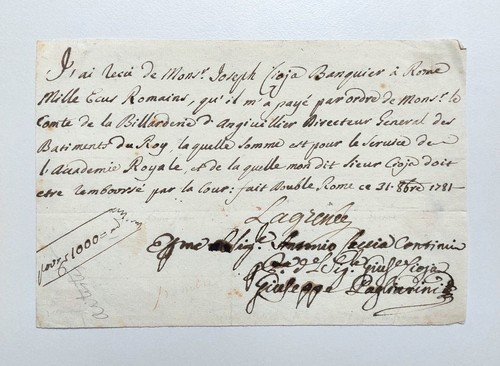 J'ai recu de Monsr. Joseph Cioja Banquier à Rome
Mille Ecus Romains, qu'il m'a payé par ordre de Monsr. le
Comte de la Billarderie d'Angiviller Directeur General des
Batiments du Roy, la quelle somme est pour le service de
l'Academie Royale, et de la quelle mon dit sieur Cioja doit
etre remboursé par la Cour: fait double Rome ce 31. 8bre 1781
Lagrenée
Antonio
Giuseppe Pagliarini
1000